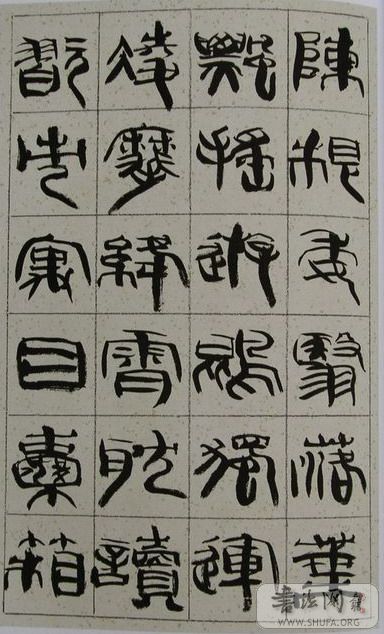 陳根委翳落葉
飄搖遊鵾獨運
凌摩絳霄耽讀
翫市寓目囊箱
WWW.SHUFA.ORG